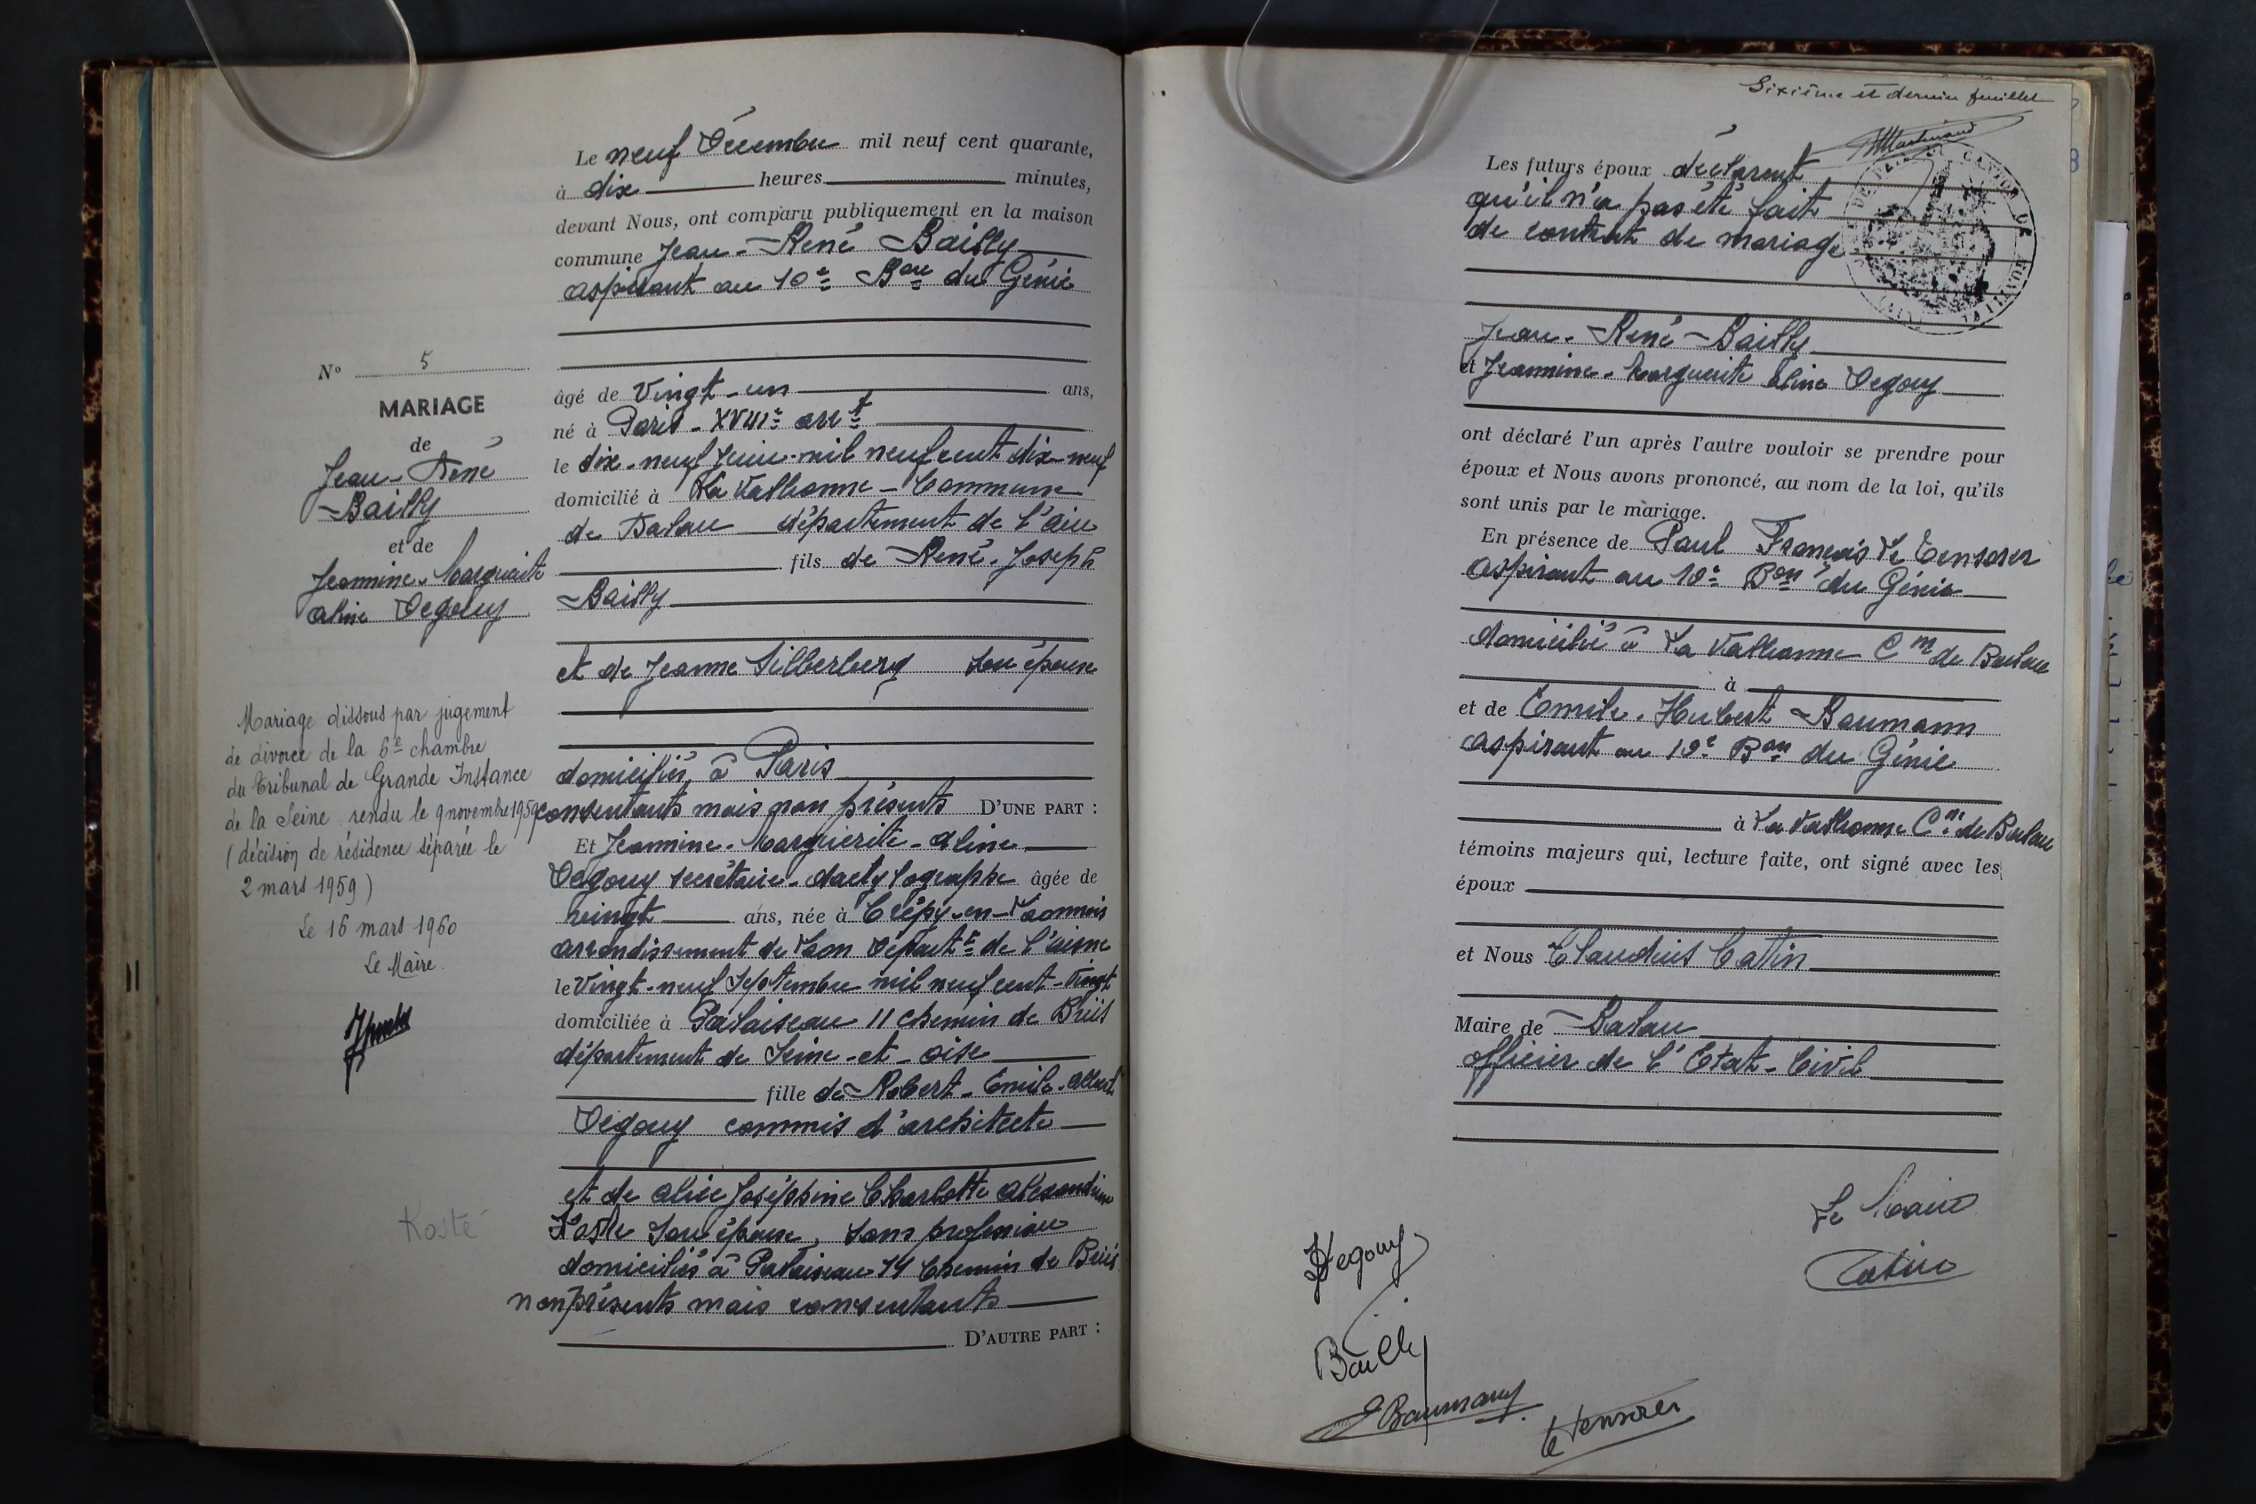 Le neuf Décembre mil neuf cent quarante,
à dix heures minutes,
devant Nous, ont comparu publiquement en la maison
commune Jean-René Bailly
aspirant au 10e Bon du Génie
N° 5
MARIAGE
de
Jean-René
Bailly
et de
Jeannine-Marguerite
Aline Degouy
Mariage dissous par jugement
de divorce de la 6e chambre
du Tribunal de Grande Instance
de la Seine rendu le 9 novembre 1959
(décision de résidence séparée le
2 mars 1959)
Le 16 mars 1960
Le Maire.
âgé de vingt-un ans,
né à Paris-XVIIIe arrt
le dix-neuf Juin mil neuf cent dix-neuf
domicilié à La Valbonne-Commune
de Balan département de l'Ain
fils de René-Joseph
Bailly
et de Jeanne Silberberg son épouse
domiciliés à Paris
consentants mais non présents D'UNE PART :
Et Jeannine-Marguerite-Aline
Degouy secrétaire-dactylographe âgée de
vingt ans, née à Crépy-en-Laonnois
arrondissement de Laon Départt de l'Aisne
le vingt-neuf Septembre mil neuf cent-vingt
domiciliée à Palaiseau 11 chemin de Briis
département de Seine-et-Oise
fille de Robert-Emile-Albert
Degouy commis d'architecte
et de Alice Joséphine Charlotte Alexandrine
Kosté son épouse, sans profession
Kosté
domiciliés à Palaiseau 14 Chemin de Briis
non présents mais consentants
D'AUTRE PART :
Sixième et dernier feuillet
Les futurs époux déclarent
qu'il n'a pas été fait
de contrat de mariage
Jean-René-Bailly
et Jeannine-Marguerite Aline Degouy
ont déclaré l'un après l'autre vouloir se prendre pour
époux et Nous avons prononcé, au nom de la loi, qu'ils
sont unis par le mariage.
En présence de Paul François Le Tensorer
aspirant au 10e Bon du Génie
domicilié à La Valbonne Cne de Balan
à
et de Emile-Hubert Baumann
aspirant au 10e Bon du Génie
à La Valbonne Cne de Balan
témoins majeurs qui, lecture faite, ont signé avec les
époux
et Nous Claudius Catin
Maire de Balan
officier de l'Etat-Civil
Le Maire
Catin
JDegouy
Bailly
E Baumann
Le Tensorer